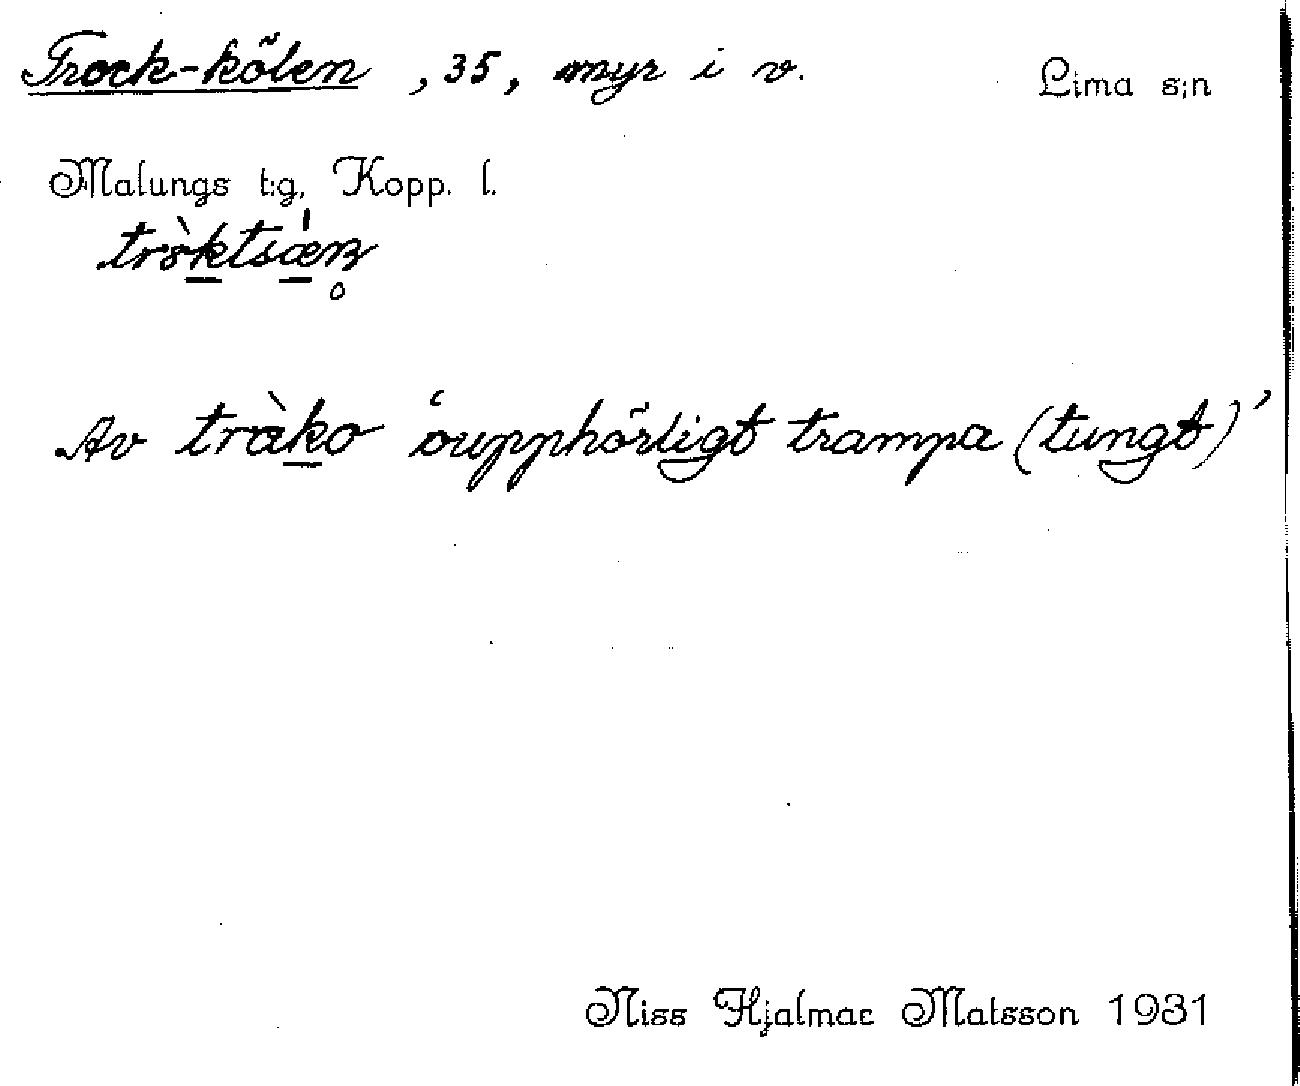 Trock-kölen, 35, myr i v. Lima s:n
Malungs t:g. Kopp. l.
tròktsæ̀n̥
Av tràko 'oupphörligt trampa (tungt)'
Niss Hjalmar Matsson 1931